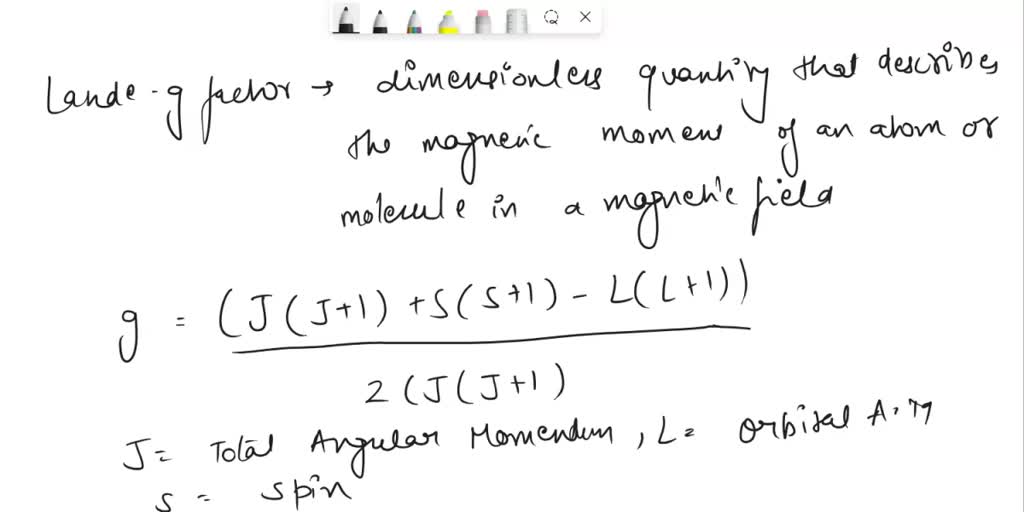 Lande-g factor → dimensionless quantity that describes
the magnetic moment of an atom or
molecule in a magnetic field
g = (J(J+1) + S(S+1) - L(L+1))
2(J(J+1)
J= Total Angular Momendum, L= orbital A.M
S = spin